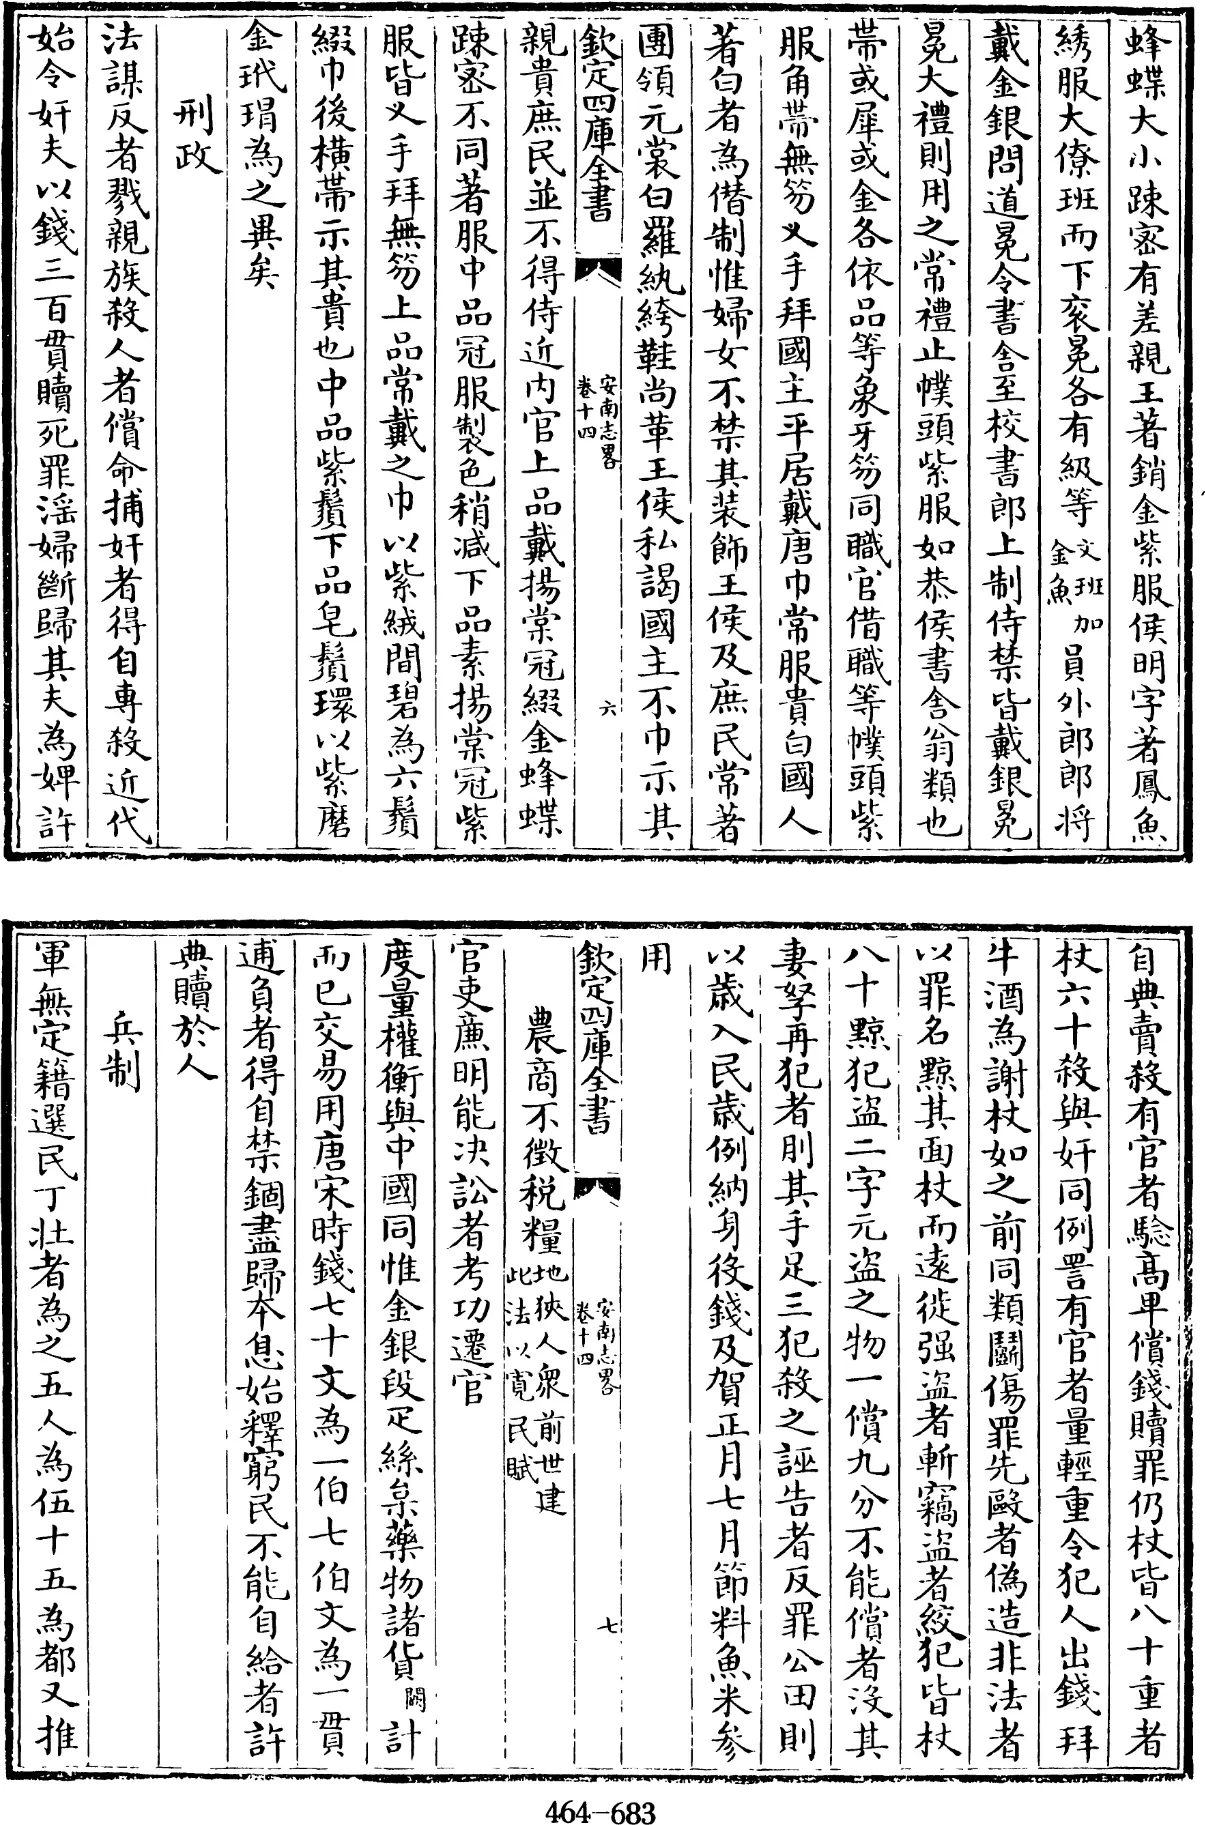 蜂蝶大小踈宻有差親王著銷金紫服侯明字著鳳魚
綉服大僚班而下衮冕各有級等文班加金魚員外郎郎将
戴金銀問道冕令書舎至校書郎上制侍禁皆戴銀冕
冕大禮則用之常禮止幞頭紫服如恭侯書舎翁類也
帶或犀或金各依品等象牙笏同職官借職等幞頭紫
服角帶無笏乂手拜國主平居戴唐巾常服貴白國人
著白者為僣制惟婦女不禁其装飾王侯及庶民常著
團領元裳白羅紈絝鞋尚革王侯私謁國主不巾示其
欽定四庫全書
安南志畧
卷十四
六
親貴庶民並不得侍近内官上品戴揚棠冠綴金蜂蝶
踈宻不同著服中品冠服製色稍减下品素揚棠冠紫
服皆乂手拜無笏上品常戴之巾以紫絨間碧為六鬚
綴巾後橫帶示其貴也中品紫鬚下品皂鬚環以紫磨
金玳瑁為之異矣
刑政
法謀反者戮親族殺人者償命捕奸者得自專殺近代
始令奸夫以錢三百貫贖死罪淫婦斷歸其夫為婢許
自典賣殺有官者驗髙卑償錢贖罪仍杖皆八十重者
杖六十殺與奸同例詈有官者量輕重令犯人出錢拜
牛酒為謝杖如之前同類鬭傷罪先毆者偽造非法者
以罪名黥其面杖而逺徙强盗者斬竊盗者絞犯皆杖
八十黥犯盗二字元盗之物一償九分不能償者沒其
妻孥再犯者刖其手足三犯殺之誣告者反罪公田則
以歳入民歳例納身役錢及賀正月七月節料魚米參
用
欽定四庫全書
安南志畧
卷十四
七
農商不徴税糧地狹人衆前世建此法以寛民賦
官吏廉明能决訟者考功遷官
度量權衡與中國同惟金銀段疋絲枲藥物諸貨闕計
而已交易用唐宋時錢七十文為一伯七伯文為一貫
逋負者得自禁錮盡歸本息始釋窮民不能自給者許
典贖於人
兵制
軍無定籍選民丁壯者為之五人為伍十五為都又推
464-683